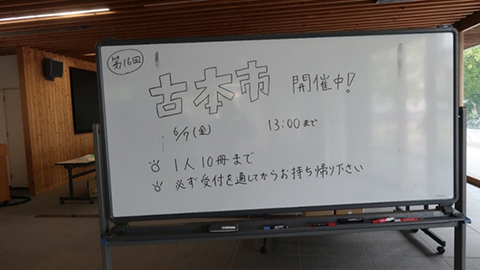 第16回
古本市 開催中!
6/7(金) 13:00まで
1人10冊まで
必ず受付を通してからお持ち帰り下さい